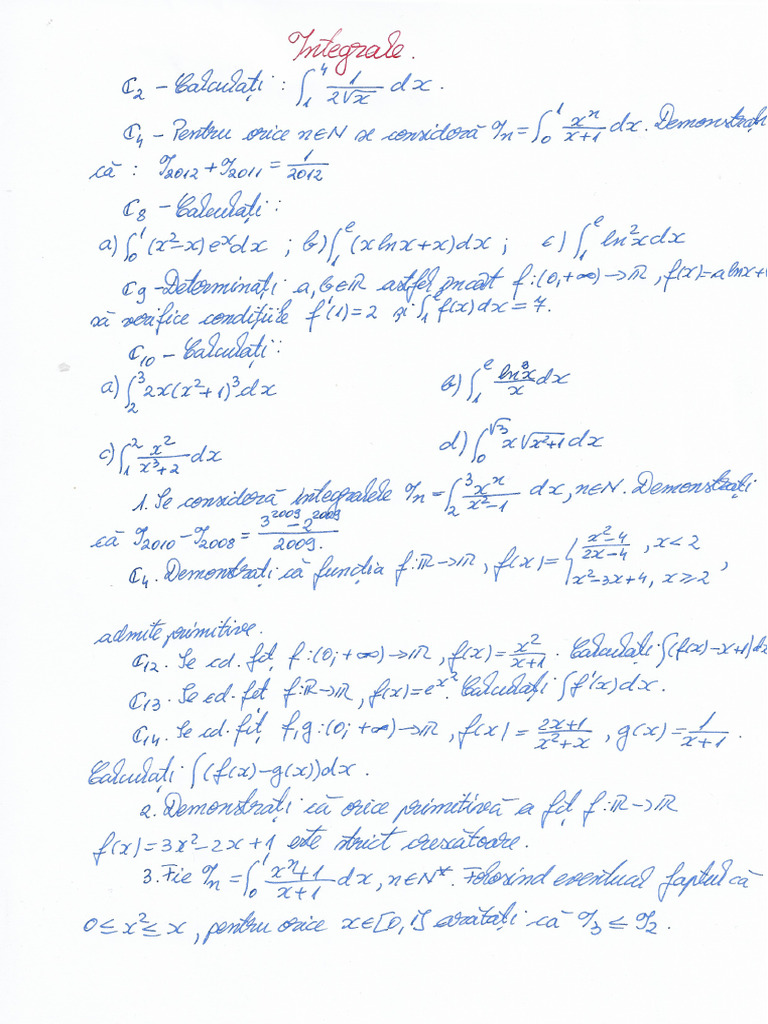 Integrale.
C₂ – Calculați : ∫₁⁴ 1/(2√x) dx.
C₄ – Pentru orice n∈N se consideră Iₙ = ∫₀¹ xⁿ/(x+1) dx. Demonstrați
că : I₂₀₁₂ + I₂₀₁₁ = 1/2012
C₈ – Calculați :
a) ∫₀¹ (x²-x)eˣdx ; b) ∫₁ᵉ (x ln x + x)dx ; c) ∫₁ᵉ ln²x dx
C₉ – Determinați a, b∈R astfel încât f:(0,+∞)→R, f(x)=a ln x+
să verifice condițiile f'(1)=2 și ∫₁ᵉ f(x)dx = 7.
C₁₀ – Calculați :
a) ∫₂³ 2x(x²+1)³dx b) ∫₁ᵉ ln⁸x/x dx
c) ∫₁² x²/(x³+2) dx d) ∫₀^√3 x√(x²+1) dx
1. Se consideră integralele Iₙ = ∫₂³ xⁿ/(x²-1) dx, n∈N. Demonstrați
că I₂₀₁₀ - I₂₀₀₈ = (3²⁰⁰⁹ - 2²⁰⁰⁹)/2009.
C₄. Demonstrați că funcția f:R→R, f(x) = { (x²-4)/(2x-4) , x<2
x²-3x+4, x≥2 ,
admite primitive.
C₁₂. Se cd. fct, f:(0;+∞)→R, f(x) = x²/(x+1). Calculați ∫(f(x)-x+1)dx
C₁₃. Se cd. fct f:R→R, f(x)=e^x². Calculați ∫f'(x)dx.
C₁₄. Se cd. fct, f,g:(0;+∞)→R, f(x) = (2x+1)/(x²+x) , g(x) = 1/(x+1) .
Calculați ∫(f(x)-g(x))dx.
2. Demonstrați că orice primitivă a fct f:R→R
f(x)=3x²-2x+1 este strict crescătoare.
3. Fie Iₙ = ∫₀¹ (xⁿ+1)/(x+1) dx, n∈N*. Folosind eventual faptul că
0≤x²≤x, pentru orice x∈[0,1] arătați că I₃ ≤ I₂.